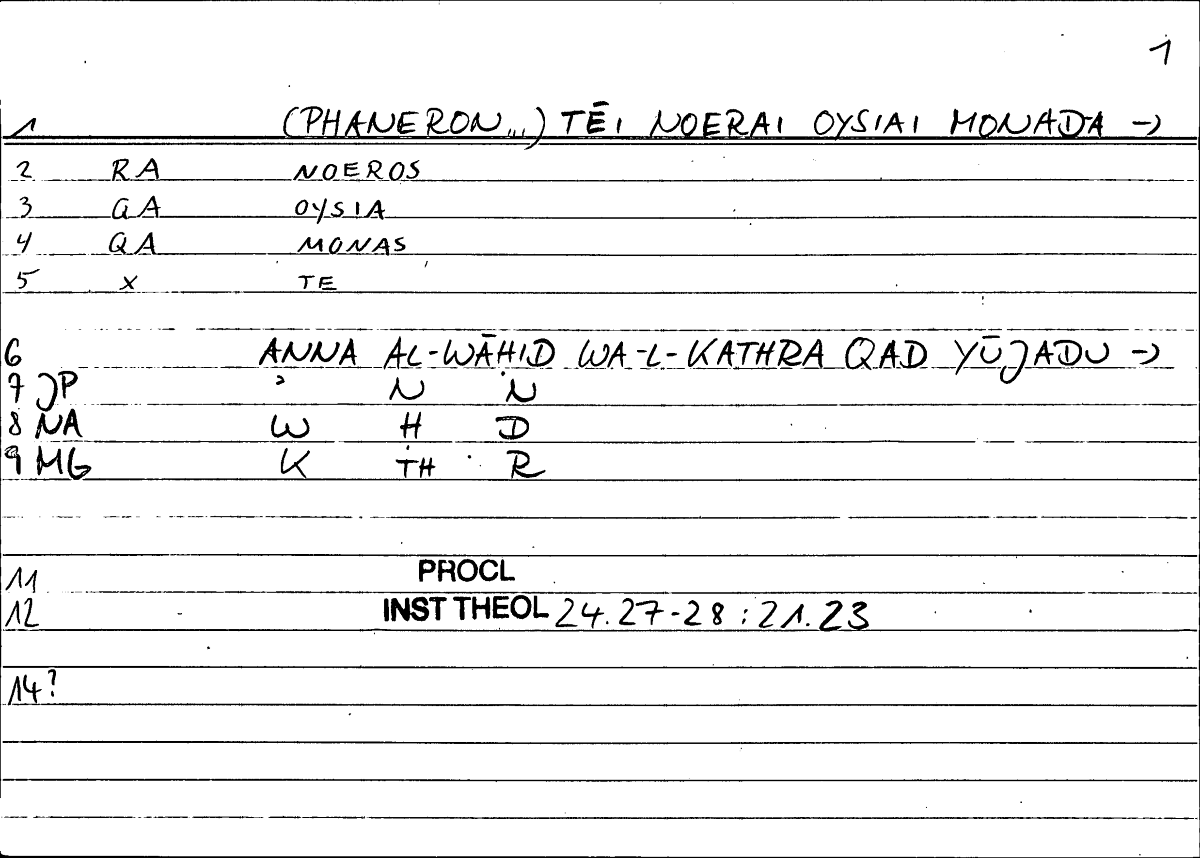 1
1 (PHANERON...) TĒI NOERAI OYSIAI MONADA →
2 RA NOEROS
3 GA OYSIA
4 QA MONAS
5 X TE
6 ANNA AL-WĀHID WA-L-KATHRA QAD YŪJADU →
7 JP ʾ N N
8 NA W H D
9 MG K TH R
11 PROCL
12 INST THEOL 24.27-28 : 21.23
14?